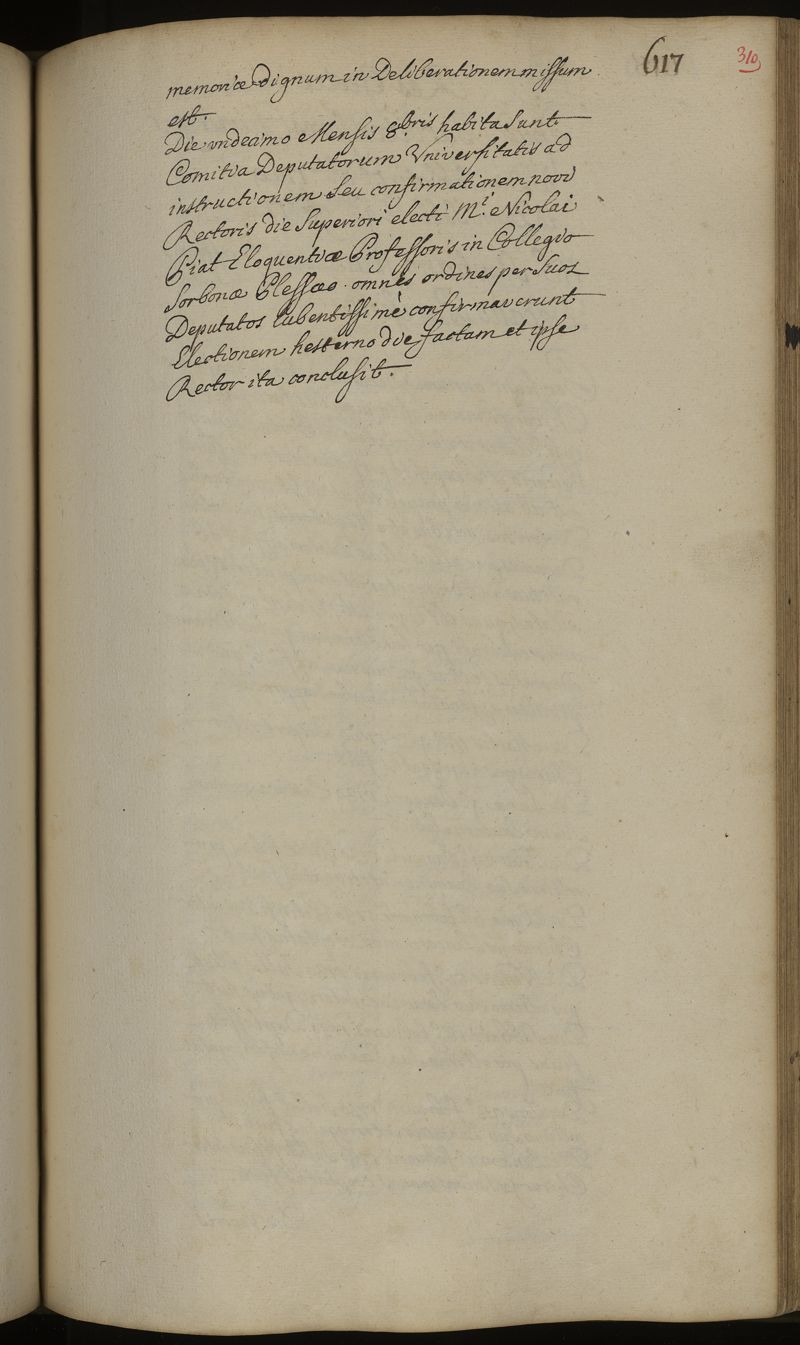 617
310
memoriæ dignum in Deliberationem missum
est.
Die undecimo Mensis 8.bris habita Sunt
Comitia Deputatorum Universitatis ad
instructionem Seu confirmationem novi
Rectoris die Superiori electi M.r Nicolai
Piat Eloquentiæ Professoris in Collegio
Sorbonæ Plessæo. omnes ordines per Suos
Deputatos lubentissimè confirmaverunt
Electionem hesterno die factam et ipse
Rector ita conclusit.